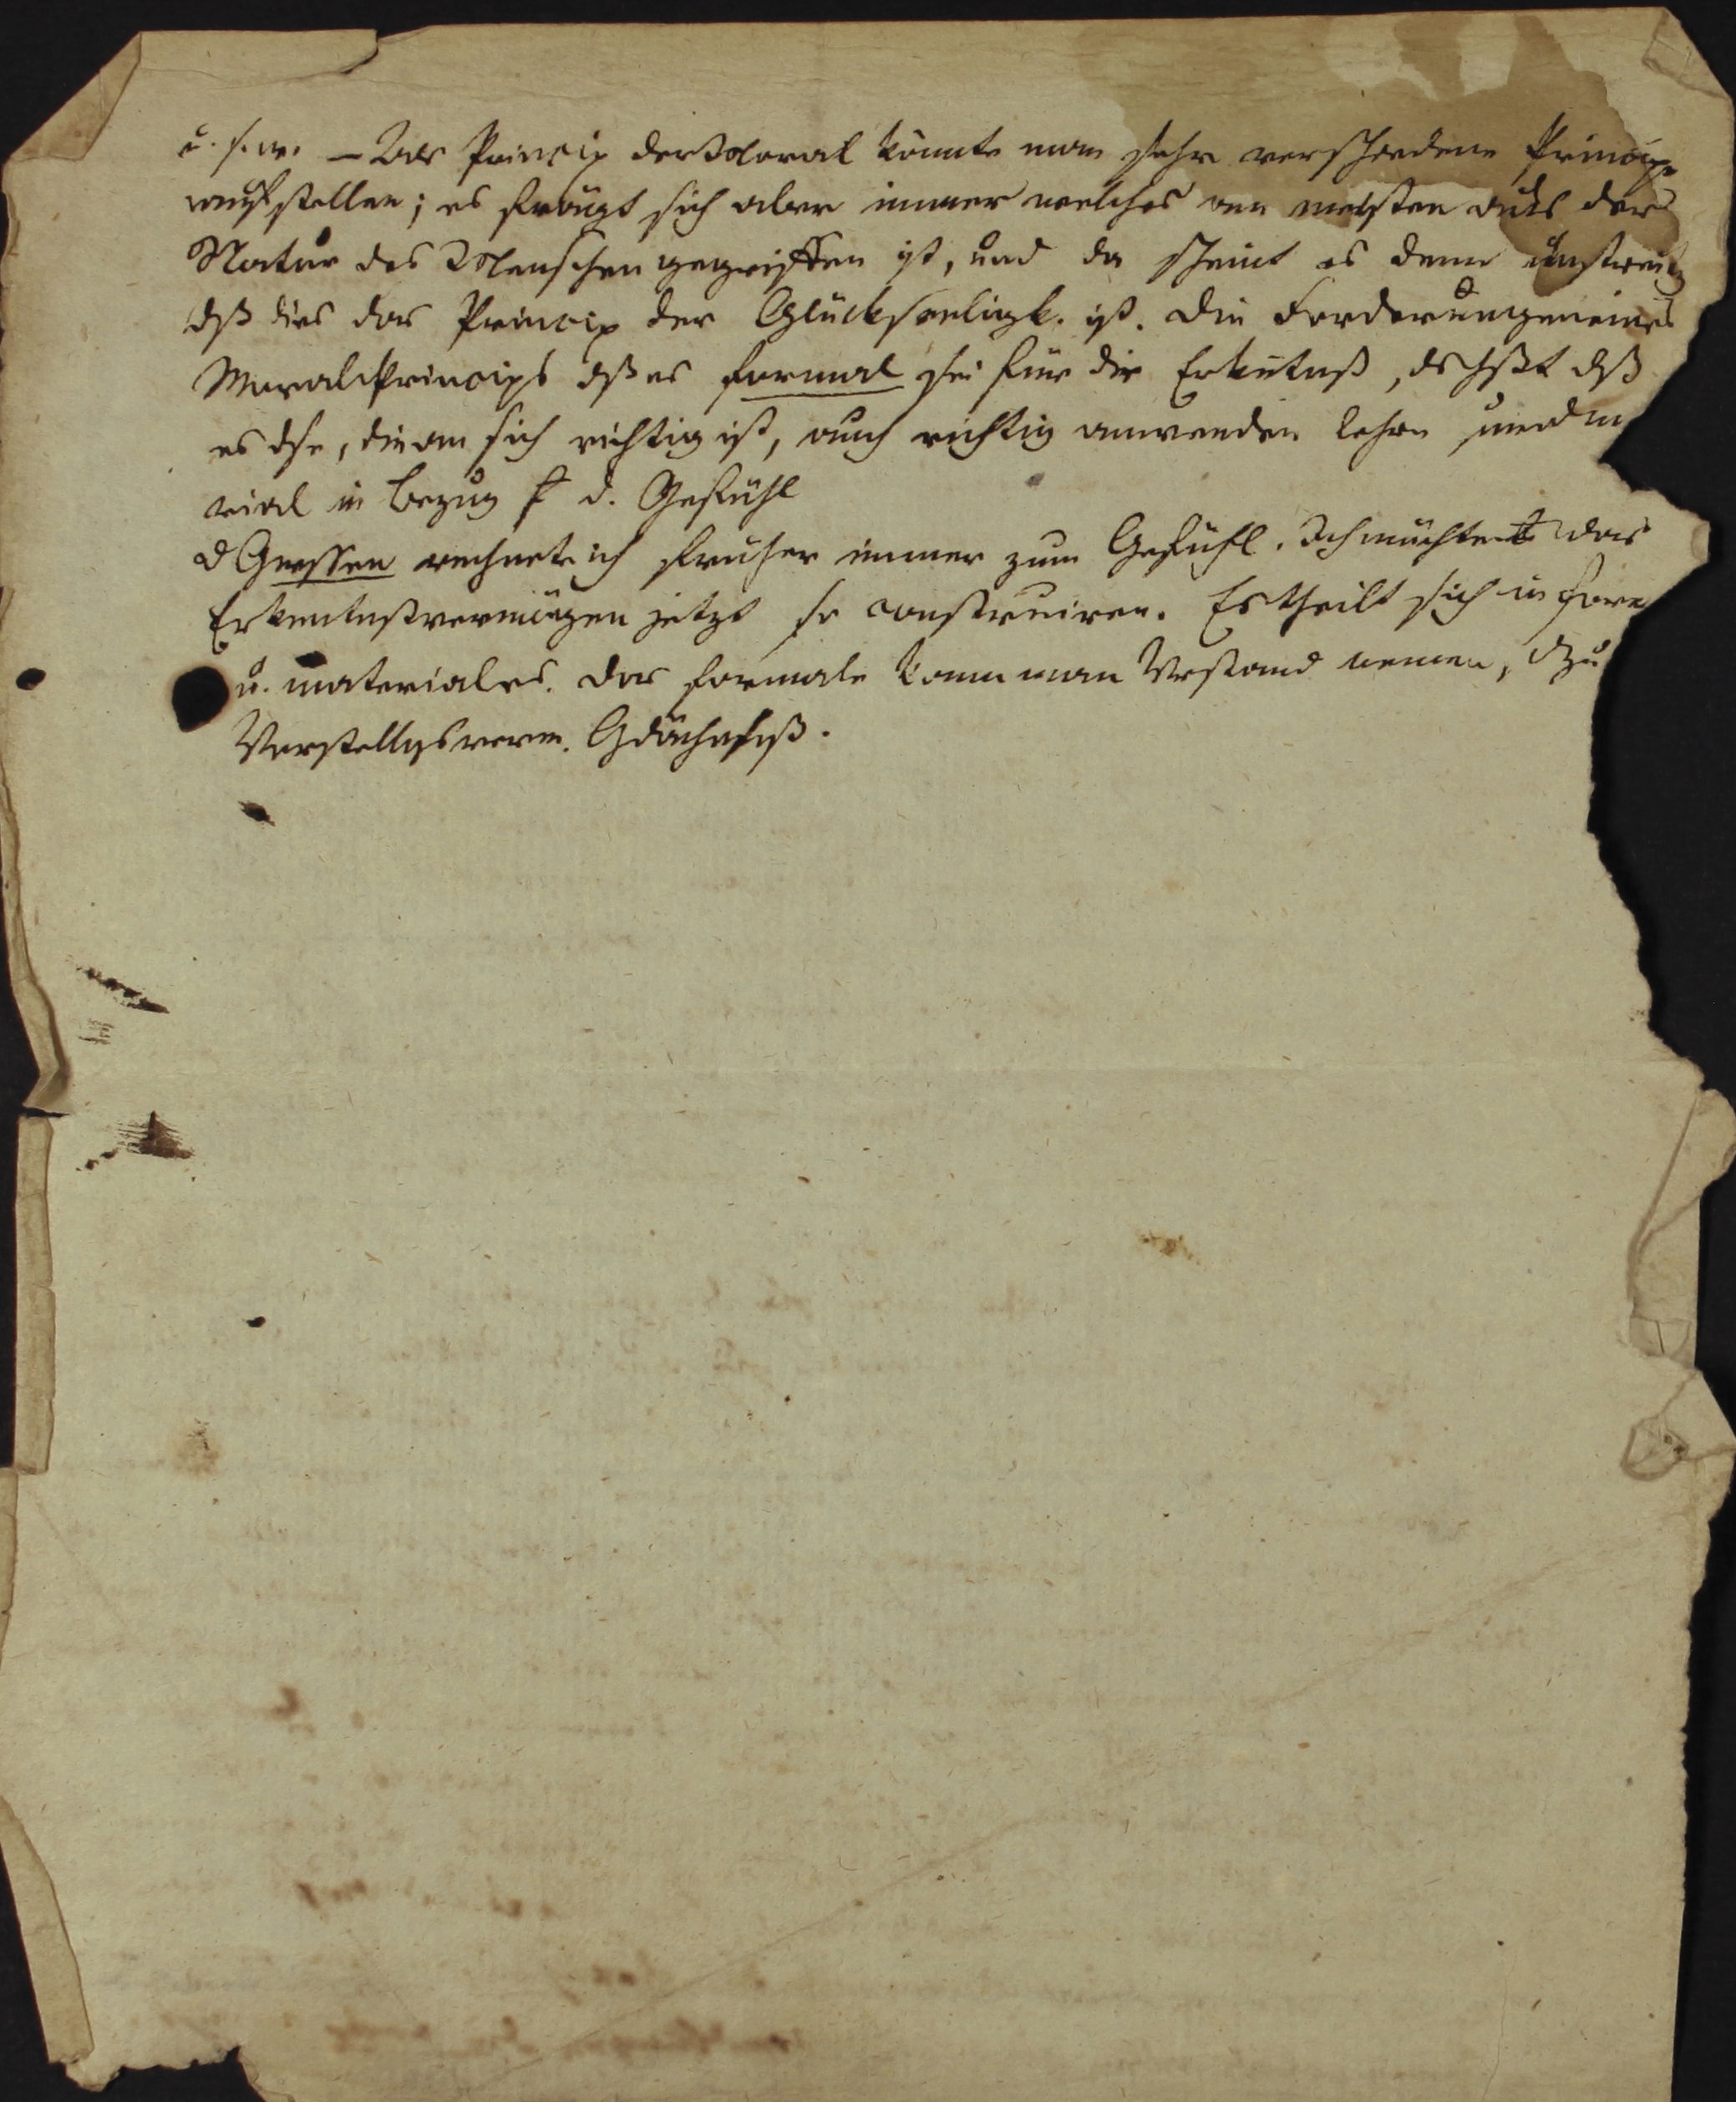 u. s. w. – Als Princip der Moral könnte man sehr verschiedene Principe
aufstellen; es frägt sich aber immer welches am meisten aus der
Natur des Menschen gegriffen ist, und da scheint es denn unstreitig
dß dies das Princip der Glückseeligk. ist. Die Forderungen eines
Moral Princips dß es formal sei für die Erkentniß, ds hßt dß
es dse, die an sich richtig ist, auch richtig anwenden lehre und m
rial in Bezug f d. Gefühl
d Gewssen rechnete ich früher immer zum Gefühl. Ich möchte das
Erkentnßvermögen jetzt so construiren. Es theilt sich in form
u. materiales. das formale kann man Vrstand nennen, dzu
Vorstellgsverm. Gdächtnß.